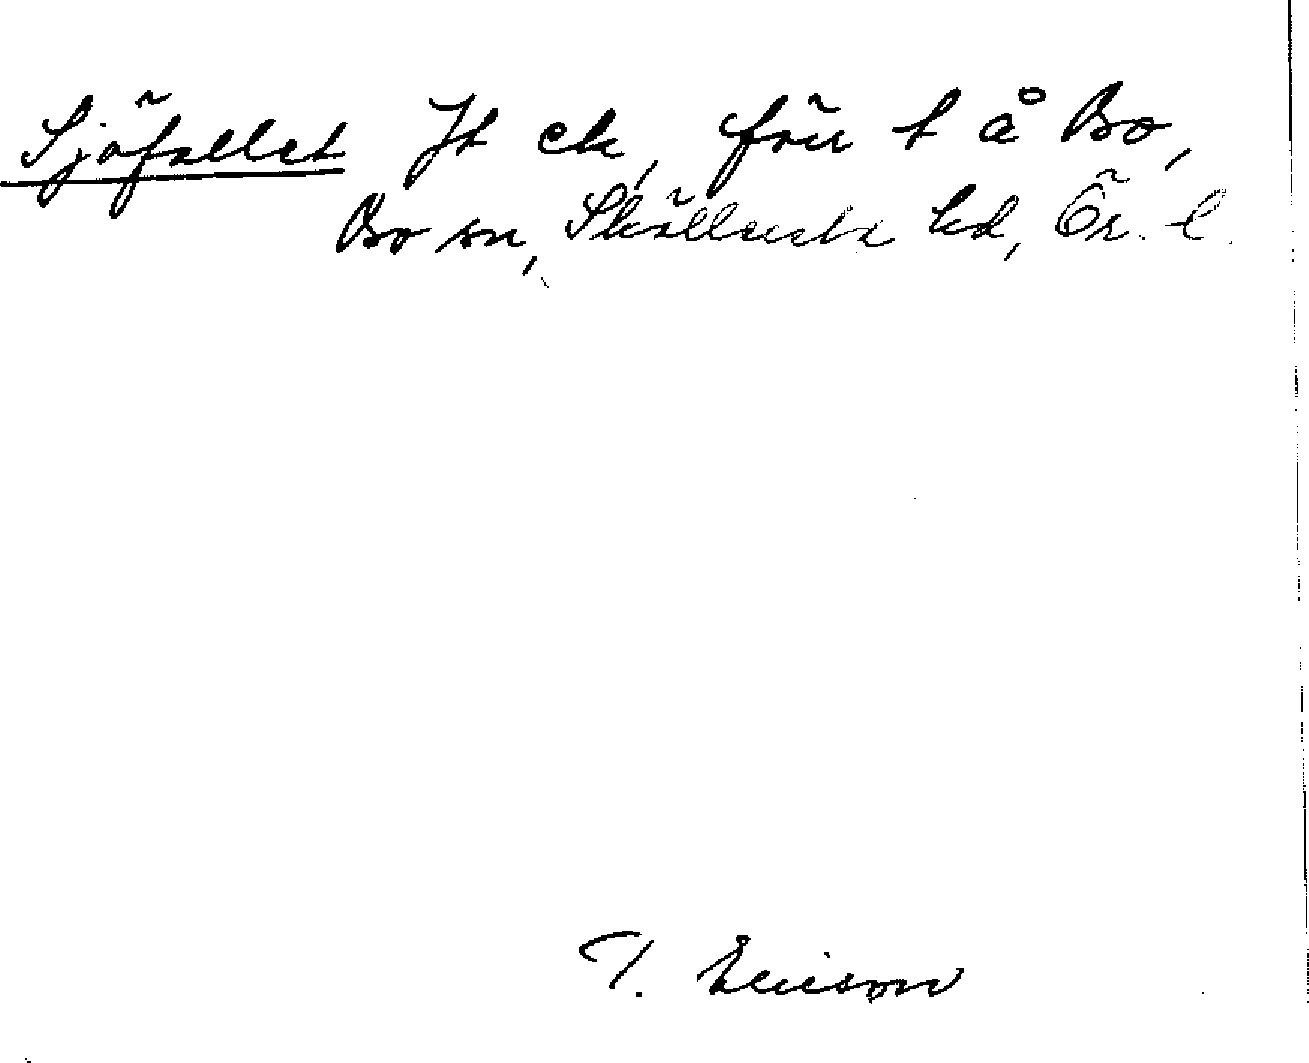 Sjöfallet Jt ek, förr t å Bo,
Bo sn, Sköllersta hd, Ör. l.
T. Ericson